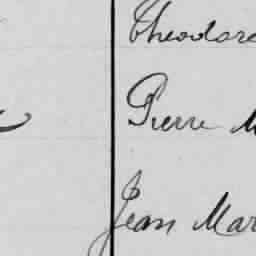 Theodore
Pierre M
Jean Mar